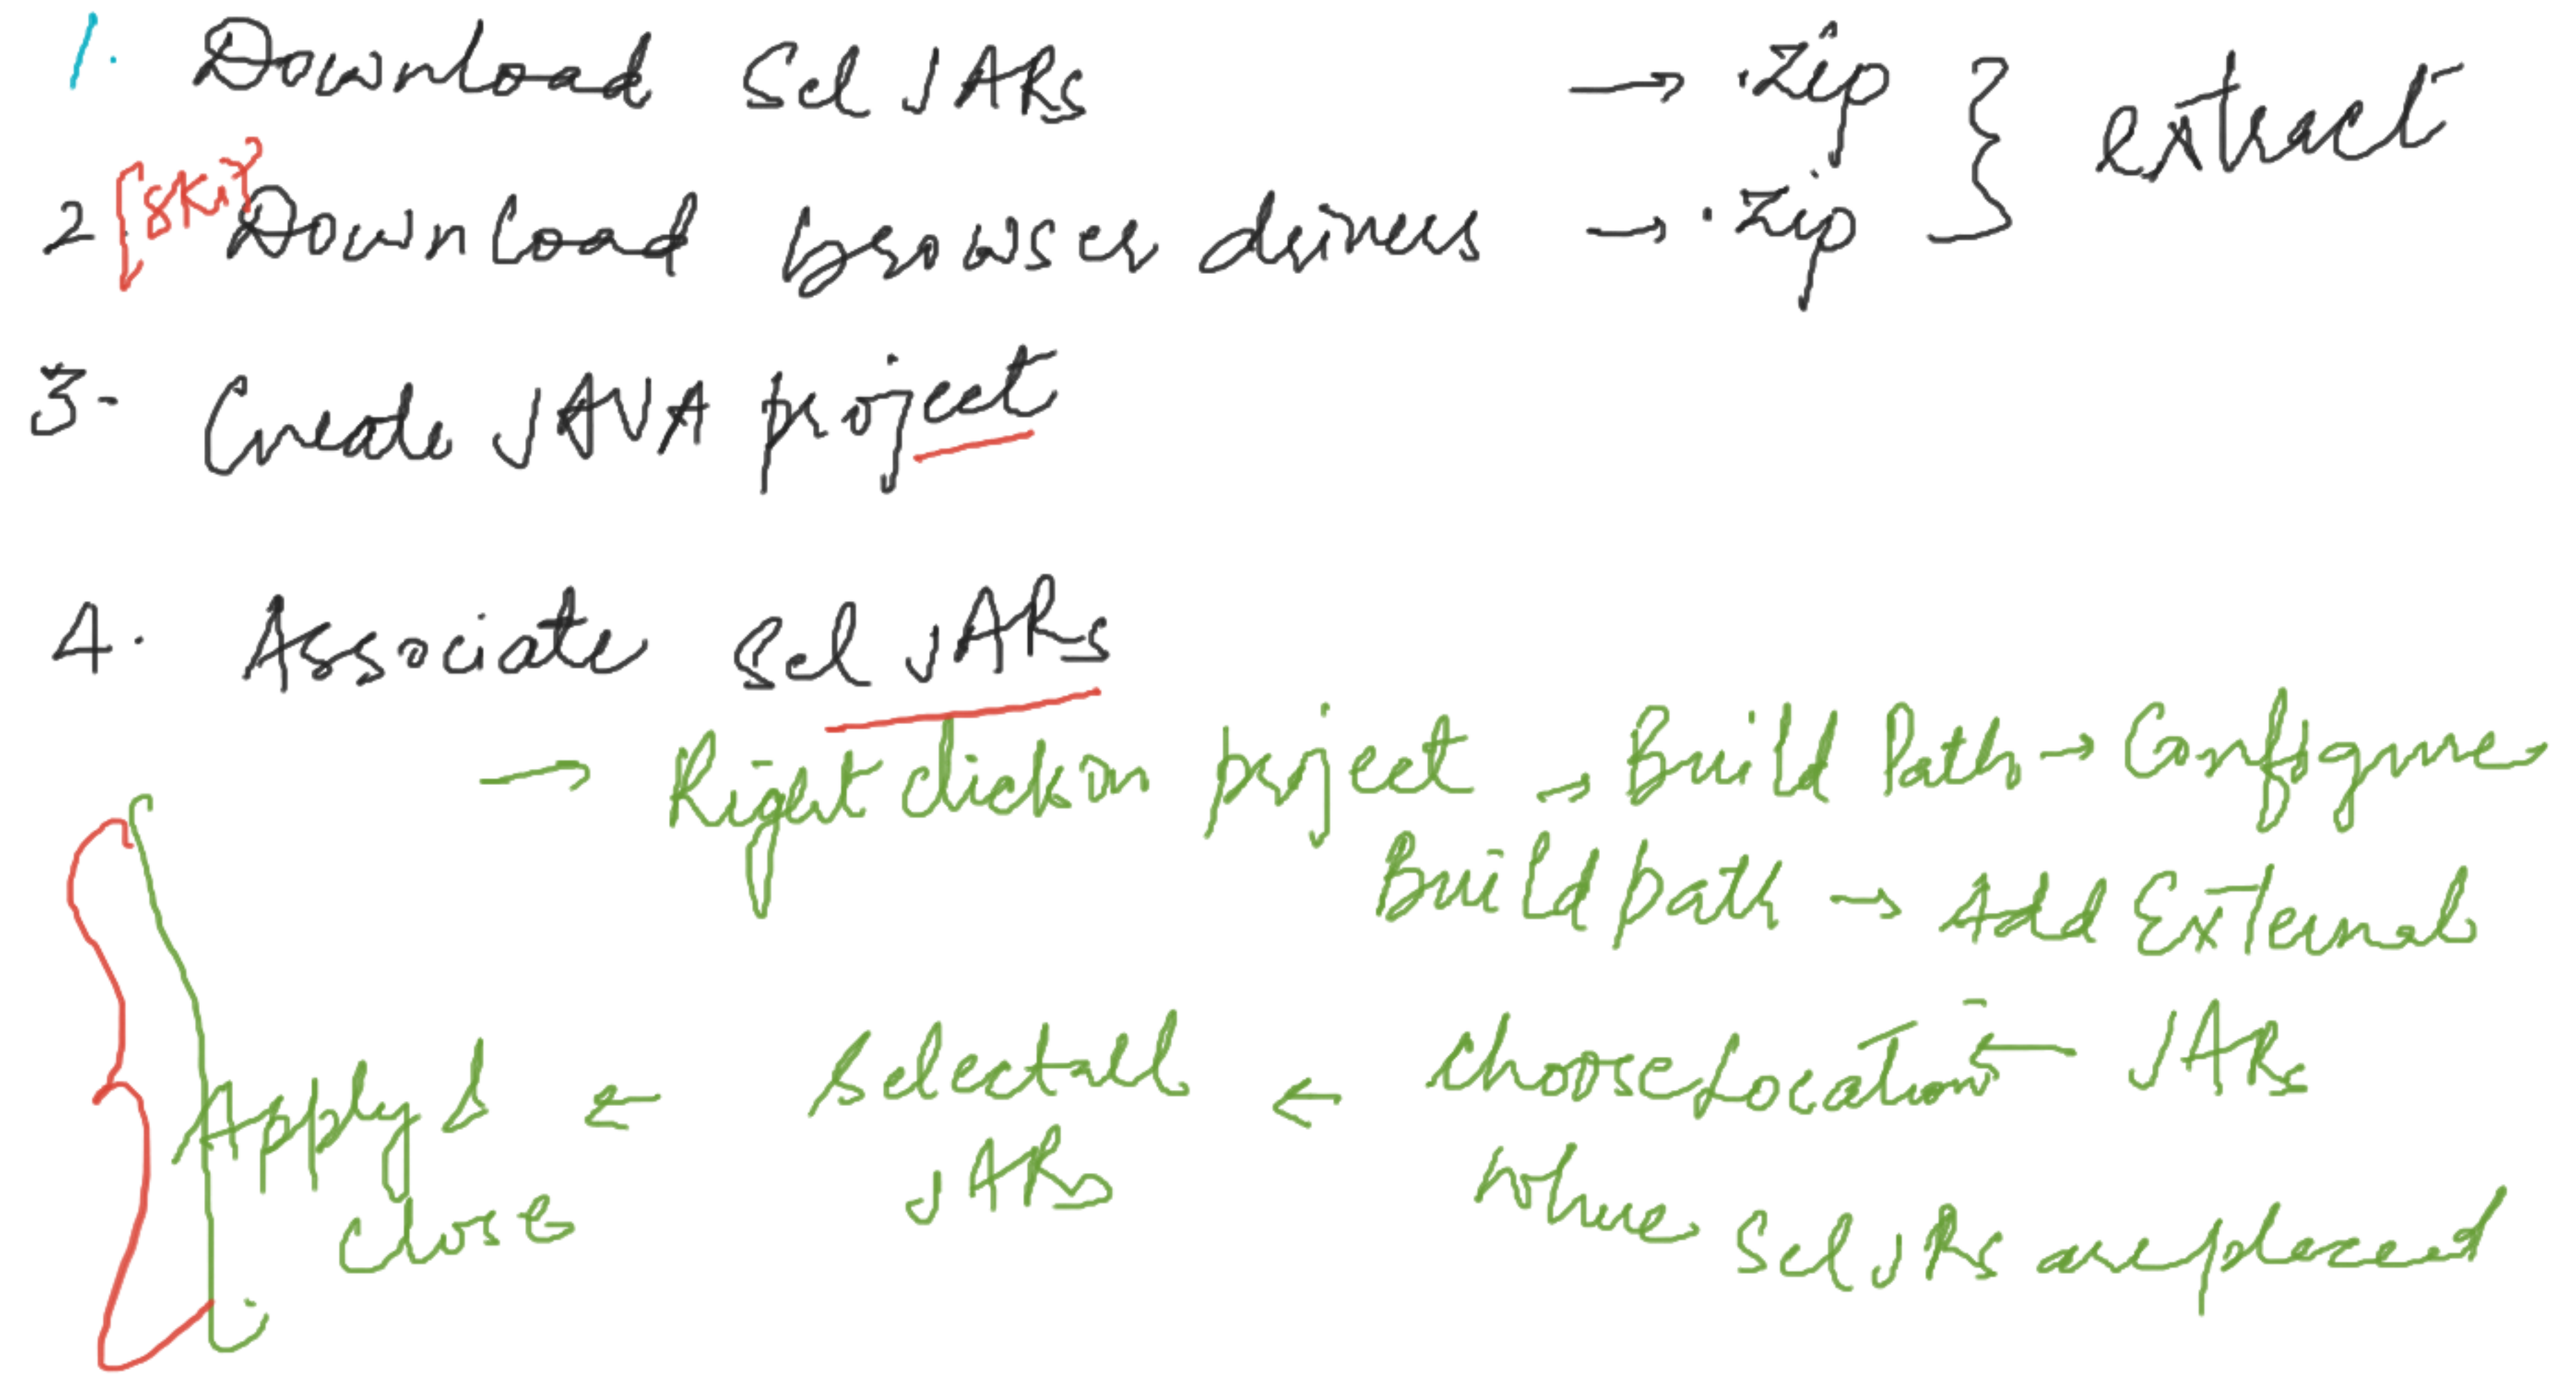 1. Download Sel JARs → .zip } extract
2. [skip Download browser drivers → .zip
3- Create JAVA project
4. Associate Sel JARs
→ Right click on project → Build Path → Configure
Build path → Add External
Apply & ← Select all ← choose location ← JARs
close JARs where Sel JRs are placed